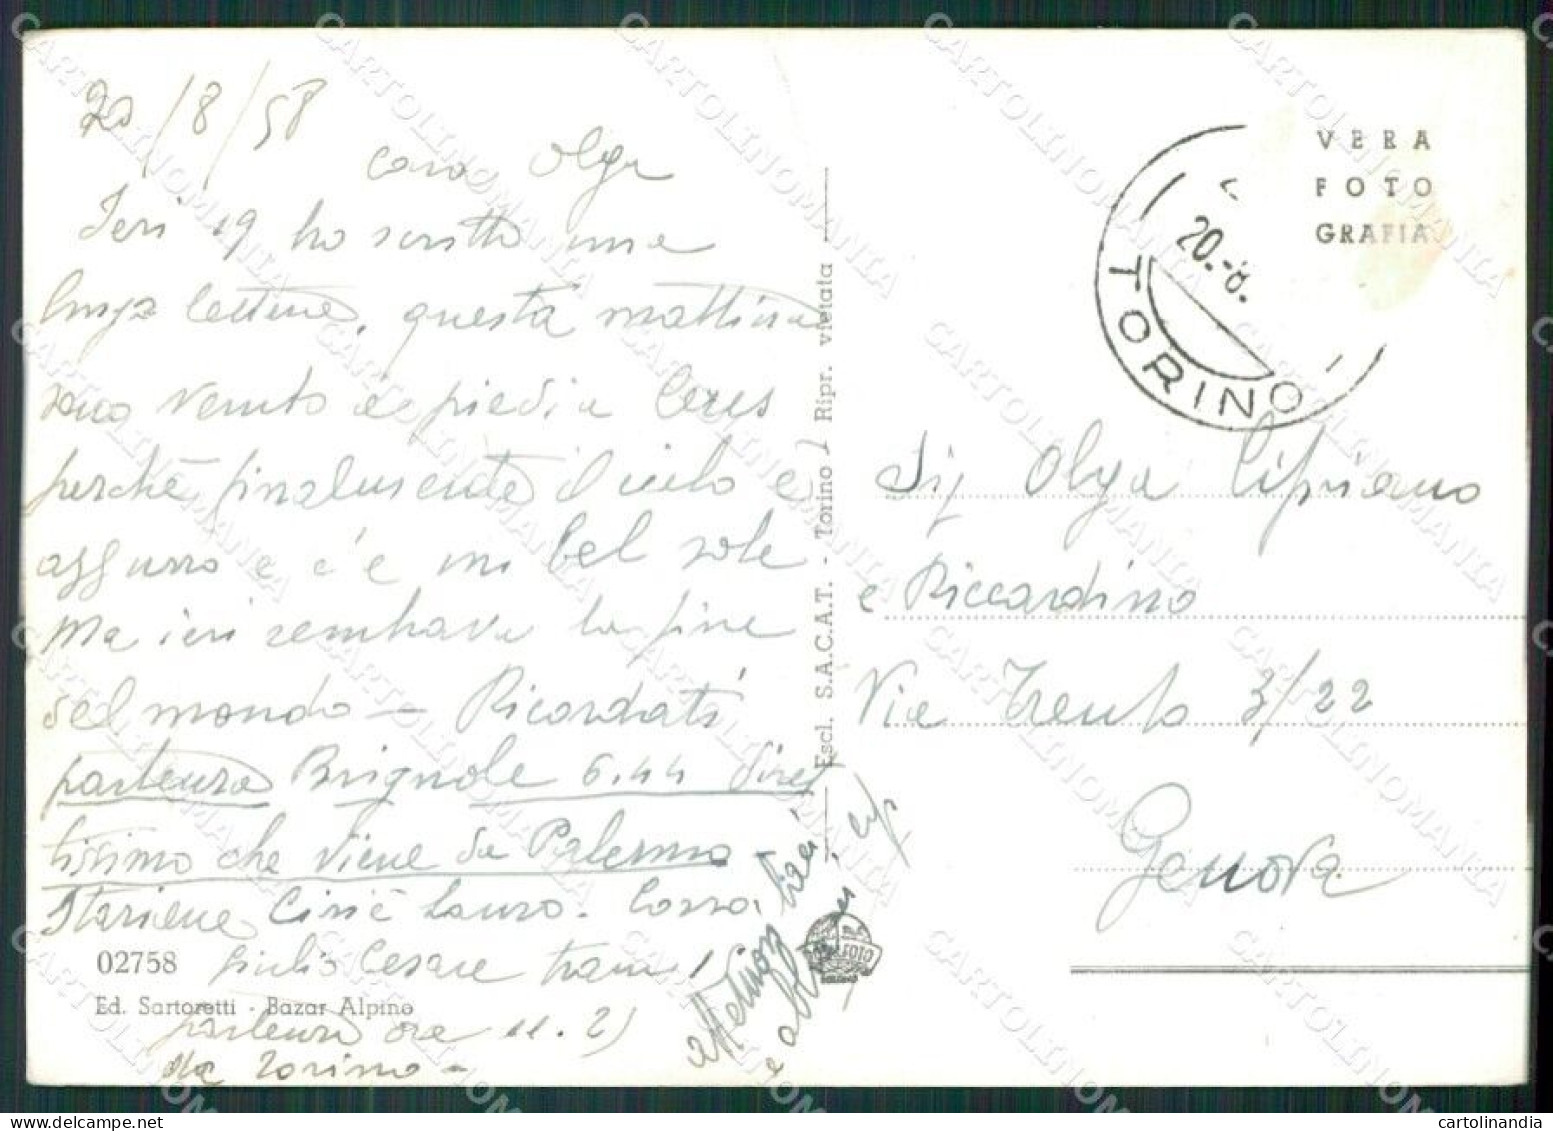 20/8/58
Cara Olga
Ieri 19 ho scritto una
lunga lettera, questa mattina
sono venuto a piedi a Ceres
perchè finalmente il cielo è
azzurro e c'è un bel sole
Ma ieri sembrava la fine
del mondo - Ricordati
partenza Brignole 6.44 diret
tissimo che viene da Palermo -
Stazione Ciriè Lanzo. Corso
Giulio Cesare tram
partenza ore 11.25
da Torino -
02758
Ed. Sartoretti - Bazar Alpino
baci
Escl. S.A.C.A.T. - Torino / Ripr. vietata
VERA
FOTO
GRAFIA
20.-8.
TORINO
Sig Olga Cipriano
e Riccardino
Via Trento 3/22
Genova
CARTOLINOMANIA
cartolinandia